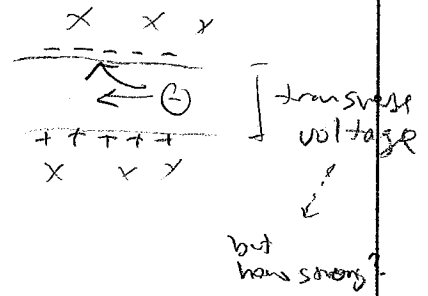 x x x
- - - - - -
-
+ + + + +
x x x
transverse
voltage
but
how strong?